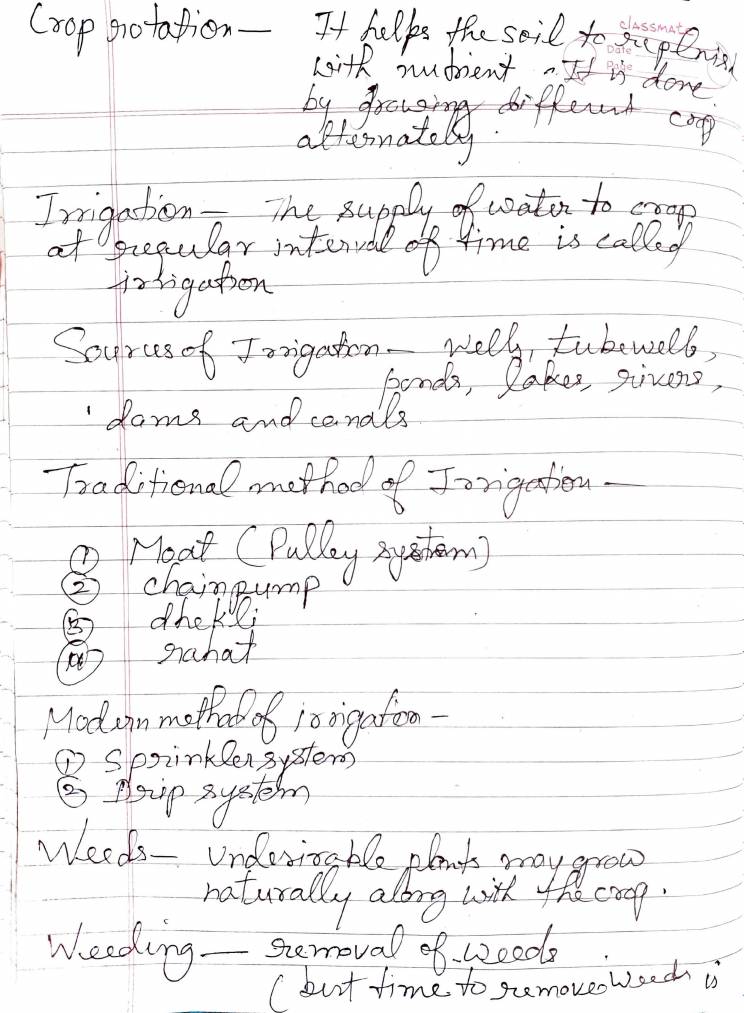 Crop rotation - It helps the soil to replnish
classmate
Date
Page
with nutrient. It is done
by growing different crop
alternately.
Irrigation - The supply of water to crop
at regular interval of time is called
irrigation
Sources of Irrigation - wells, tubewells,
ponds, lakes, rivers,
dams and canals
Traditional method of Irrigation -
① Moat (Pulley system)
② chainpump
③ dhekli
④ rahat
Modern method of irrigation -
① Sprinkler system
② Drip system
Weeds - Undesirable plants may grow
naturally along with the crop.
Weeding - removal of weeds
(best time to remove weeds is